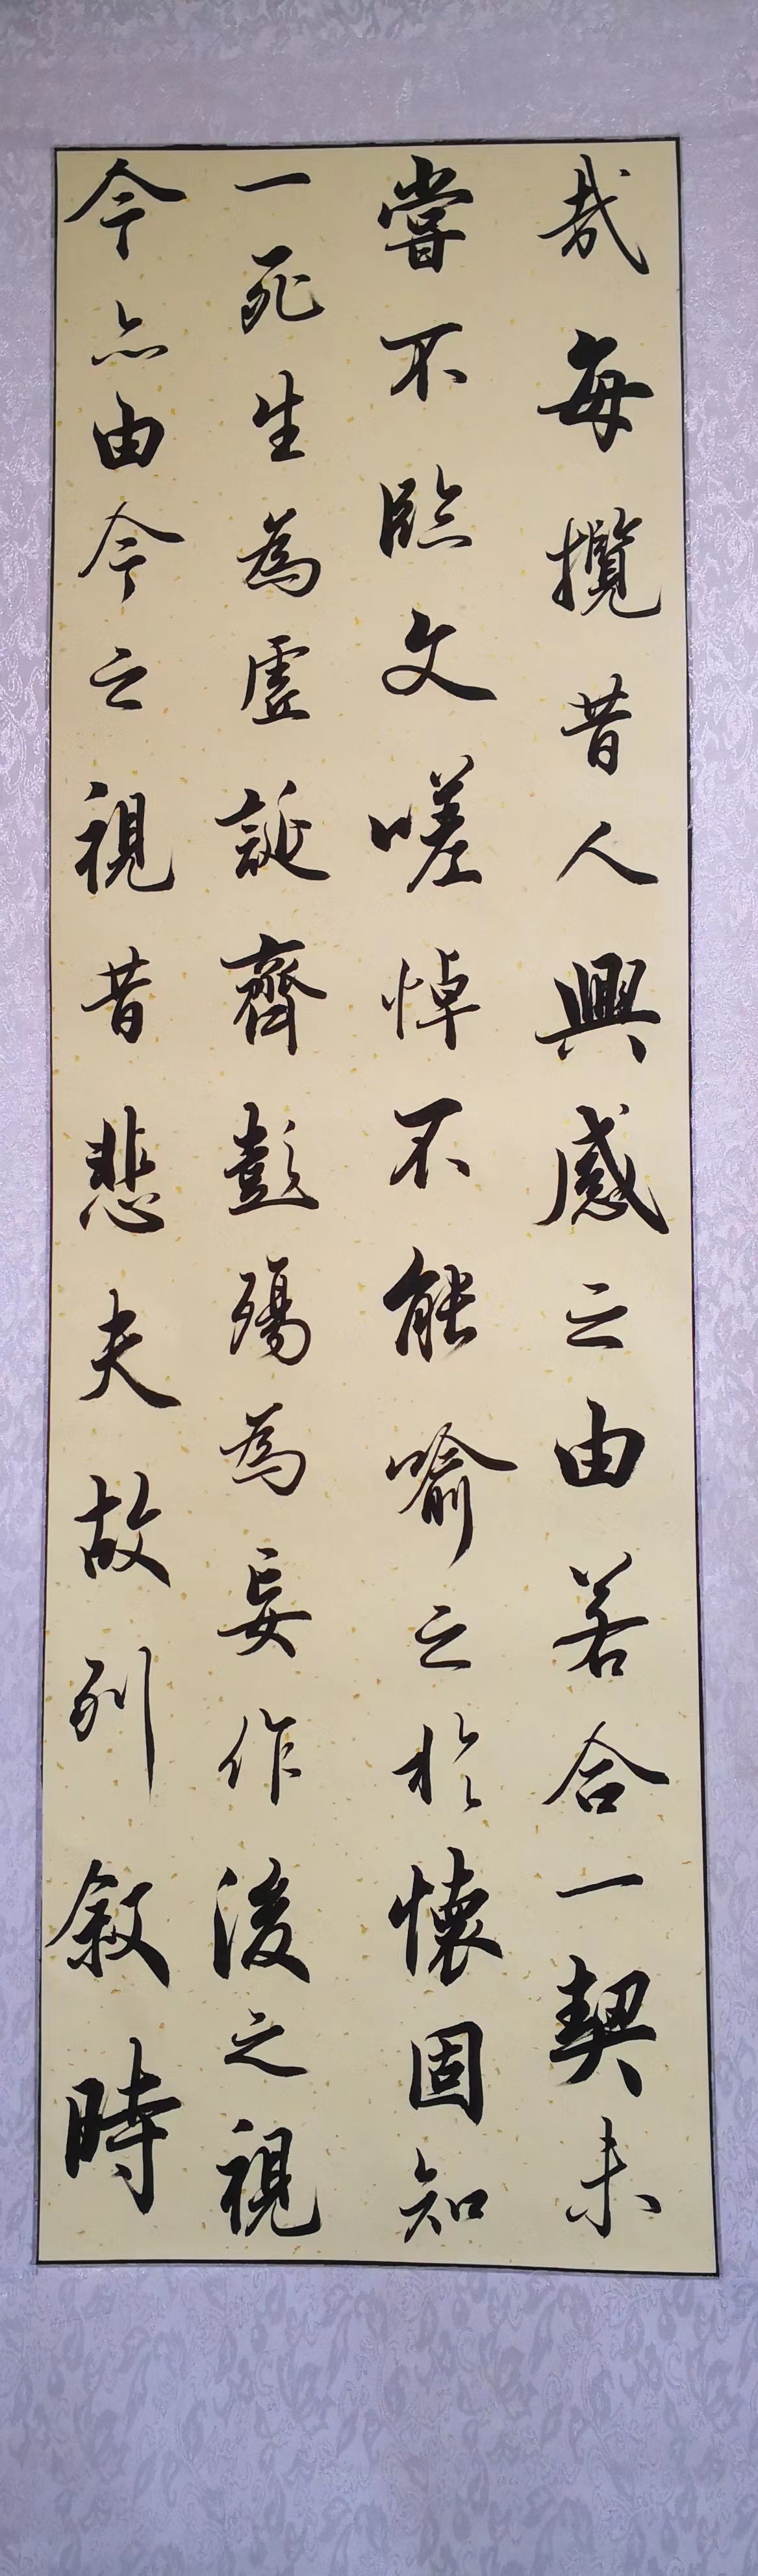 哉每攬昔人興感之由若合一契未
嘗不臨文嗟悼不能喻之於懷固知
一死生為虛誕齊彭殤為妄作後之視
今亦由今之視昔悲夫故列敘時